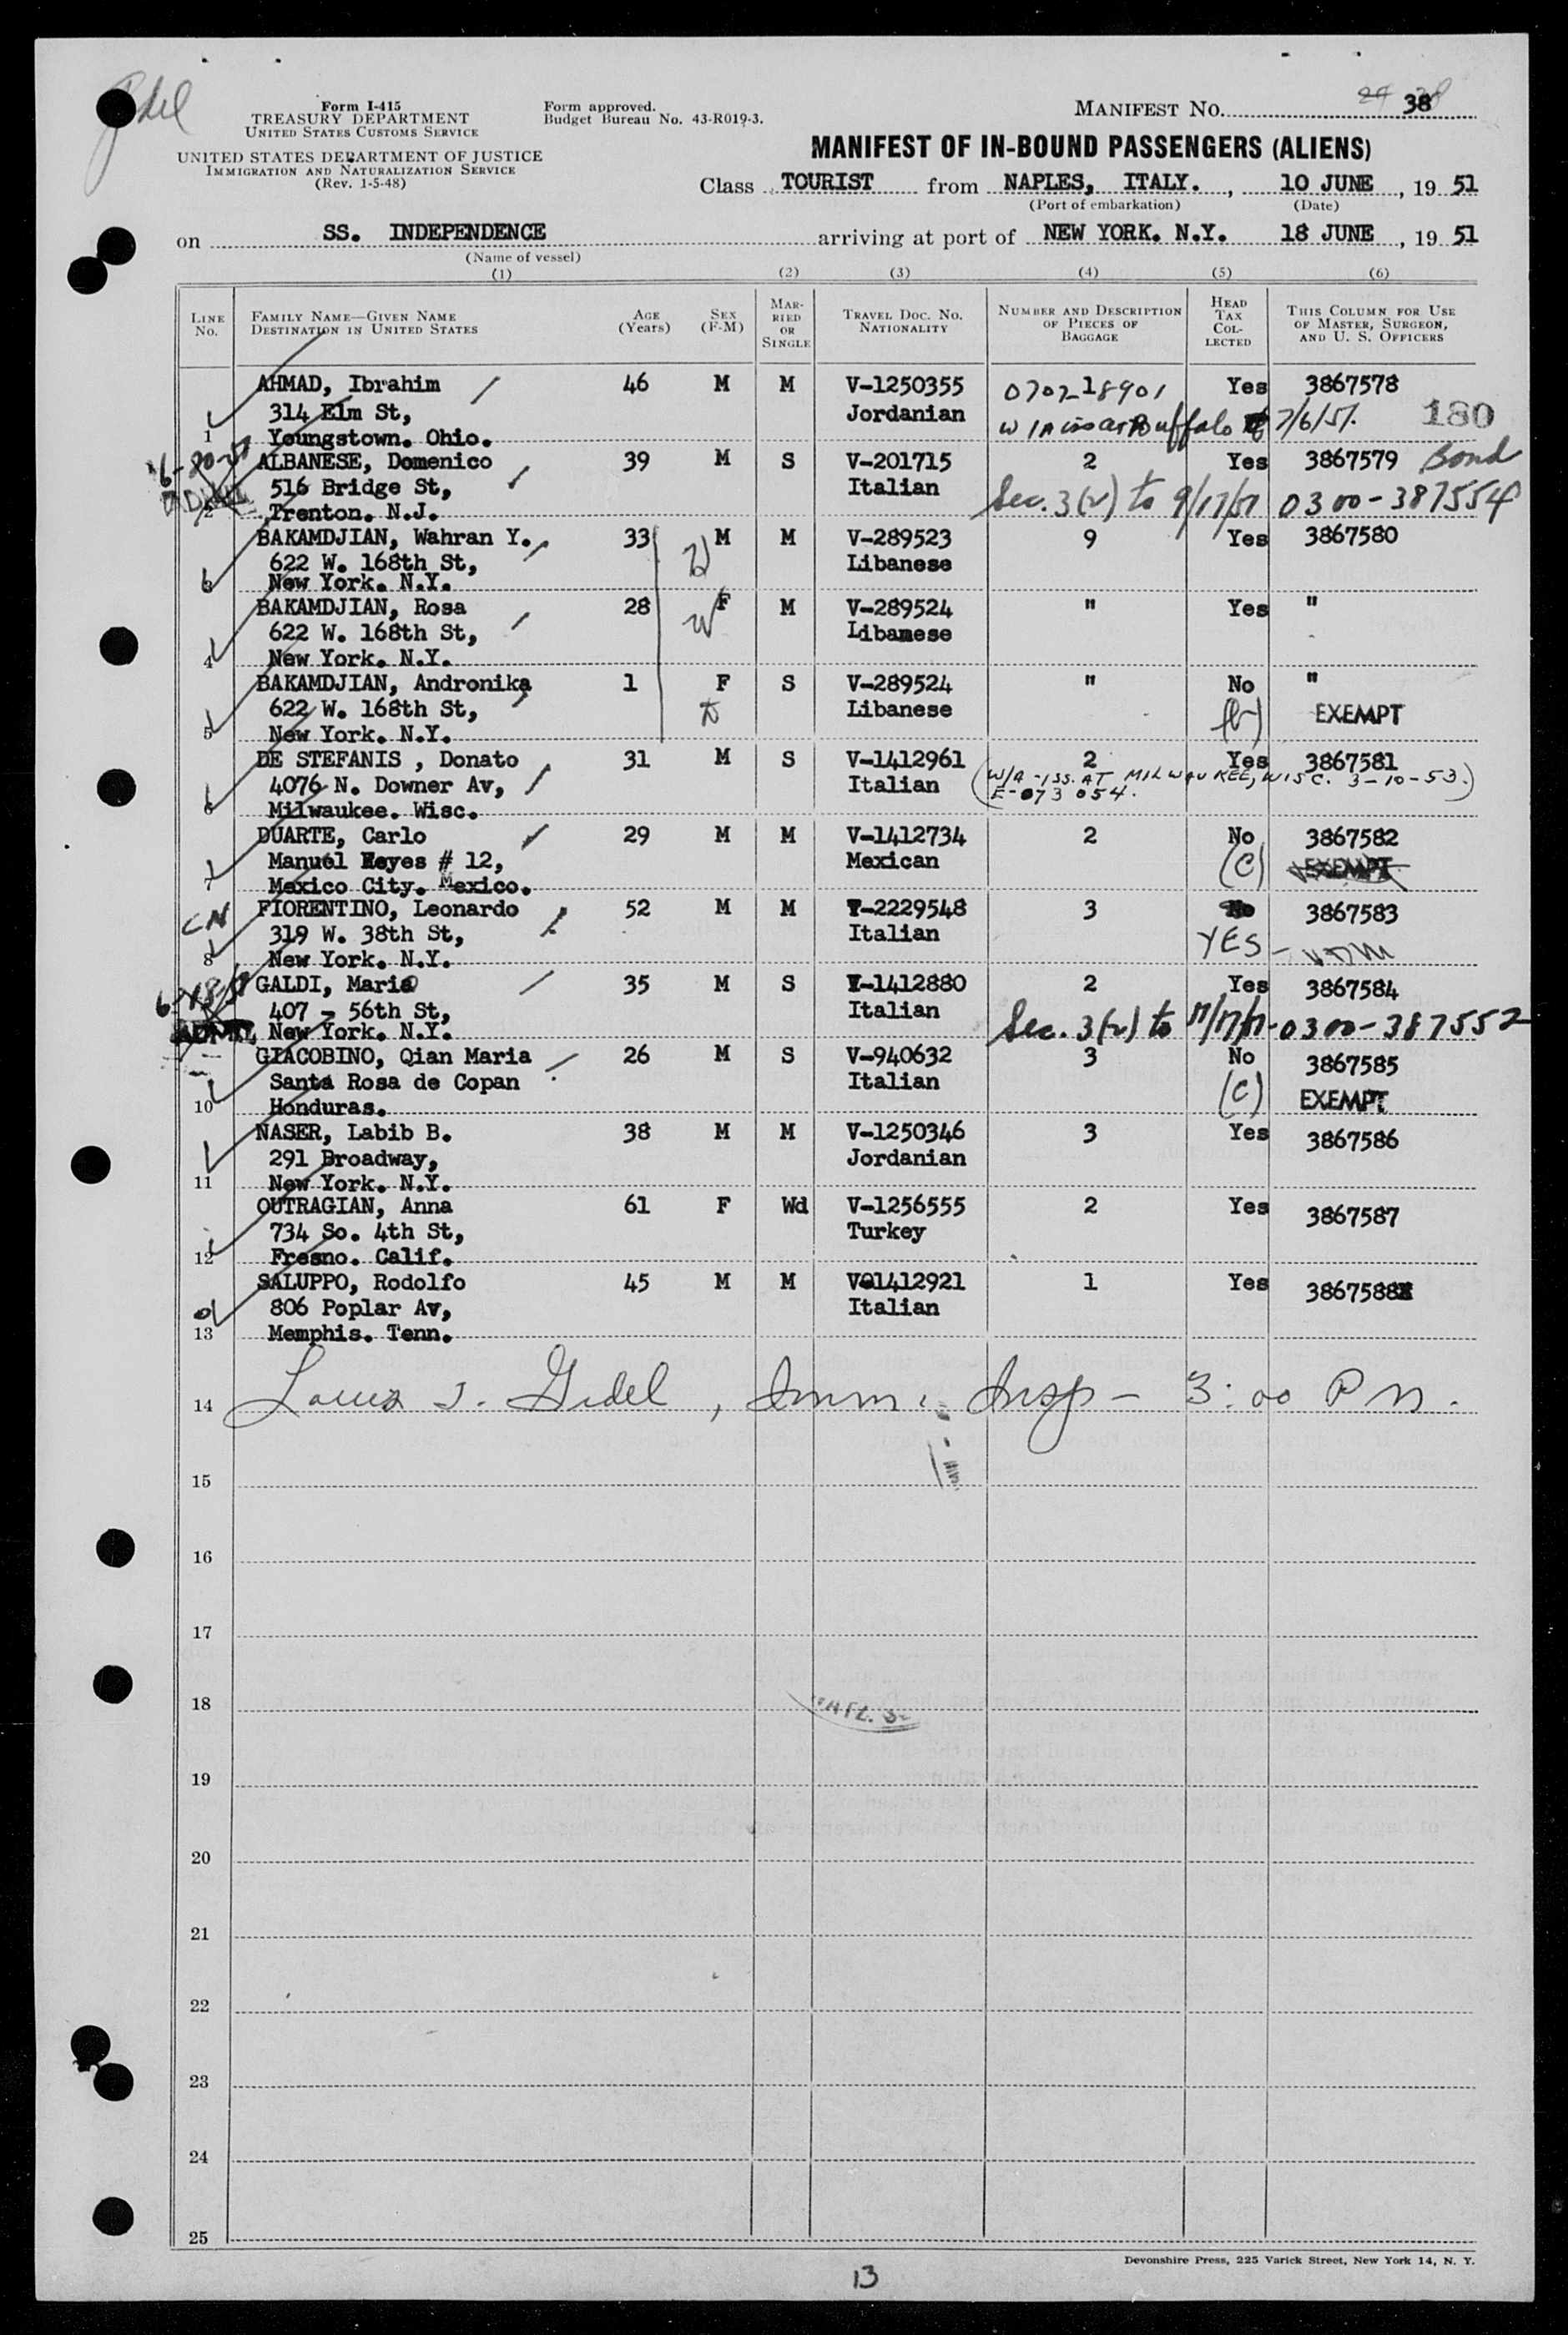 Form I-415
TREASURY DEPARTMENT
UNITED STATES CUSTOMS SERVICE
UNITED STATES DEPARTMENT OF JUSTICE
IMMIGRATION AND NATURALIZATION SERVICE
(Rev. 1-5-48)
Form approved.
Budget Bureau No. 43-R019-3.
MANIFEST NO. 38
MANIFEST OF IN-BOUND PASSENGERS (ALIENS)
Class TOURIST from NAPLES, ITALY. , 10 JUNE , 19 51
(Port of embarkation) (Date)
on SS. INDEPENDENCE arriving at port of NEW YORK. N.Y. 18 JUNE , 19 51
(Name of vessel)
(1) (2) (3) (4) (5) (6)
LINE No. FAMILY NAME—GIVEN NAME DESTINATION IN UNITED STATES AGE (Years) SEX (F-M) MARRIED OR SINGLE TRAVEL DOC. NO. NATIONALITY NUMBER AND DESCRIPTION OF PIECES OF BAGGAGE HEAD TAX COLLECTED THIS COLUMN FOR USE OF MASTER, SURGEON, AND U. S. OFFICERS
AHMAD, Ibrahim 46 M M V-1250355 0702-18901 Yes 3867578
314 Elm St, Jordanian Buffalo 7/6/51. 180
1 Youngstown. Ohio.
ALBANESE, Domenico 39 M S V-201715 2 Yes 3867579 Bond
516 Bridge St, Italian Sec. 3(2) to 9/17/51 0300-387554
2 Trenton. N.J.
BAKAMDJIAN, Wahran Y. 33 M M V-289523 9 Yes 3867580
622 W. 168th St, Libanese
New York. N.Y.
BAKAMDJIAN, Rosa 28 F M V-289524 " Yes "
622 W. 168th St, Libanese
4 New York. N.Y.
BAKAMDJIAN, Andronika 1 F S V-289524 " No "
622 W. 168th St, Libanese EXEMPT
5 New York. N.Y.
DE STEFANIS , Donato 31 M S V-1412961 2 Yes 3867581
4076 N. Downer Av, Italian (W/A-ISS. AT MILWAUKEE, WISC. 3-10-53.)
E-073 054.
6 Milwaukee. Wisc.
DUARTE, Carlo 29 M M V-1412734 2 No 3867582
Manuel Reyes # 12, Mexican (C) EXEMPT
7 Mexico City. Mexico.
CN FIORENTINO, Leonardo 52 M M T-2229548 3 No 3867583
319 W. 38th St, Italian YES -
8 New York. N.Y.
GALDI, Mario 35 M S V-1412880 2 Yes 3867584
407 - 56th St, Italian Sec. 3(2) to 0300-387552
New York. N.Y.
GIACOBINO, Qian Maria 26 M S V-940632 3 No 3867585
Santa Rosa de Copan Italian (C) EXEMPT
10 Honduras.
NASER, Labib B. 38 M M V-1250346 3 Yes 3867586
291 Broadway, Jordanian
11 New York. N.Y.
OUTRAGIAN, Anna 61 F Wd V-1256555 2 Yes 3867587
734 So. 4th St, Turkey
12 Fresno. Calif.
SALUPPO, Rodolfo 45 M M V01412921 1 Yes 3867588
806 Poplar Av, Italian
13 Memphis. Tenn.
14 Louis J. Gidel, Imm. Insp - 3:00 PM.
15
16
17
18
19
20
21
22
23
24
25
Devonshire Press, 225 Varick Street, New York 14, N. Y.
13